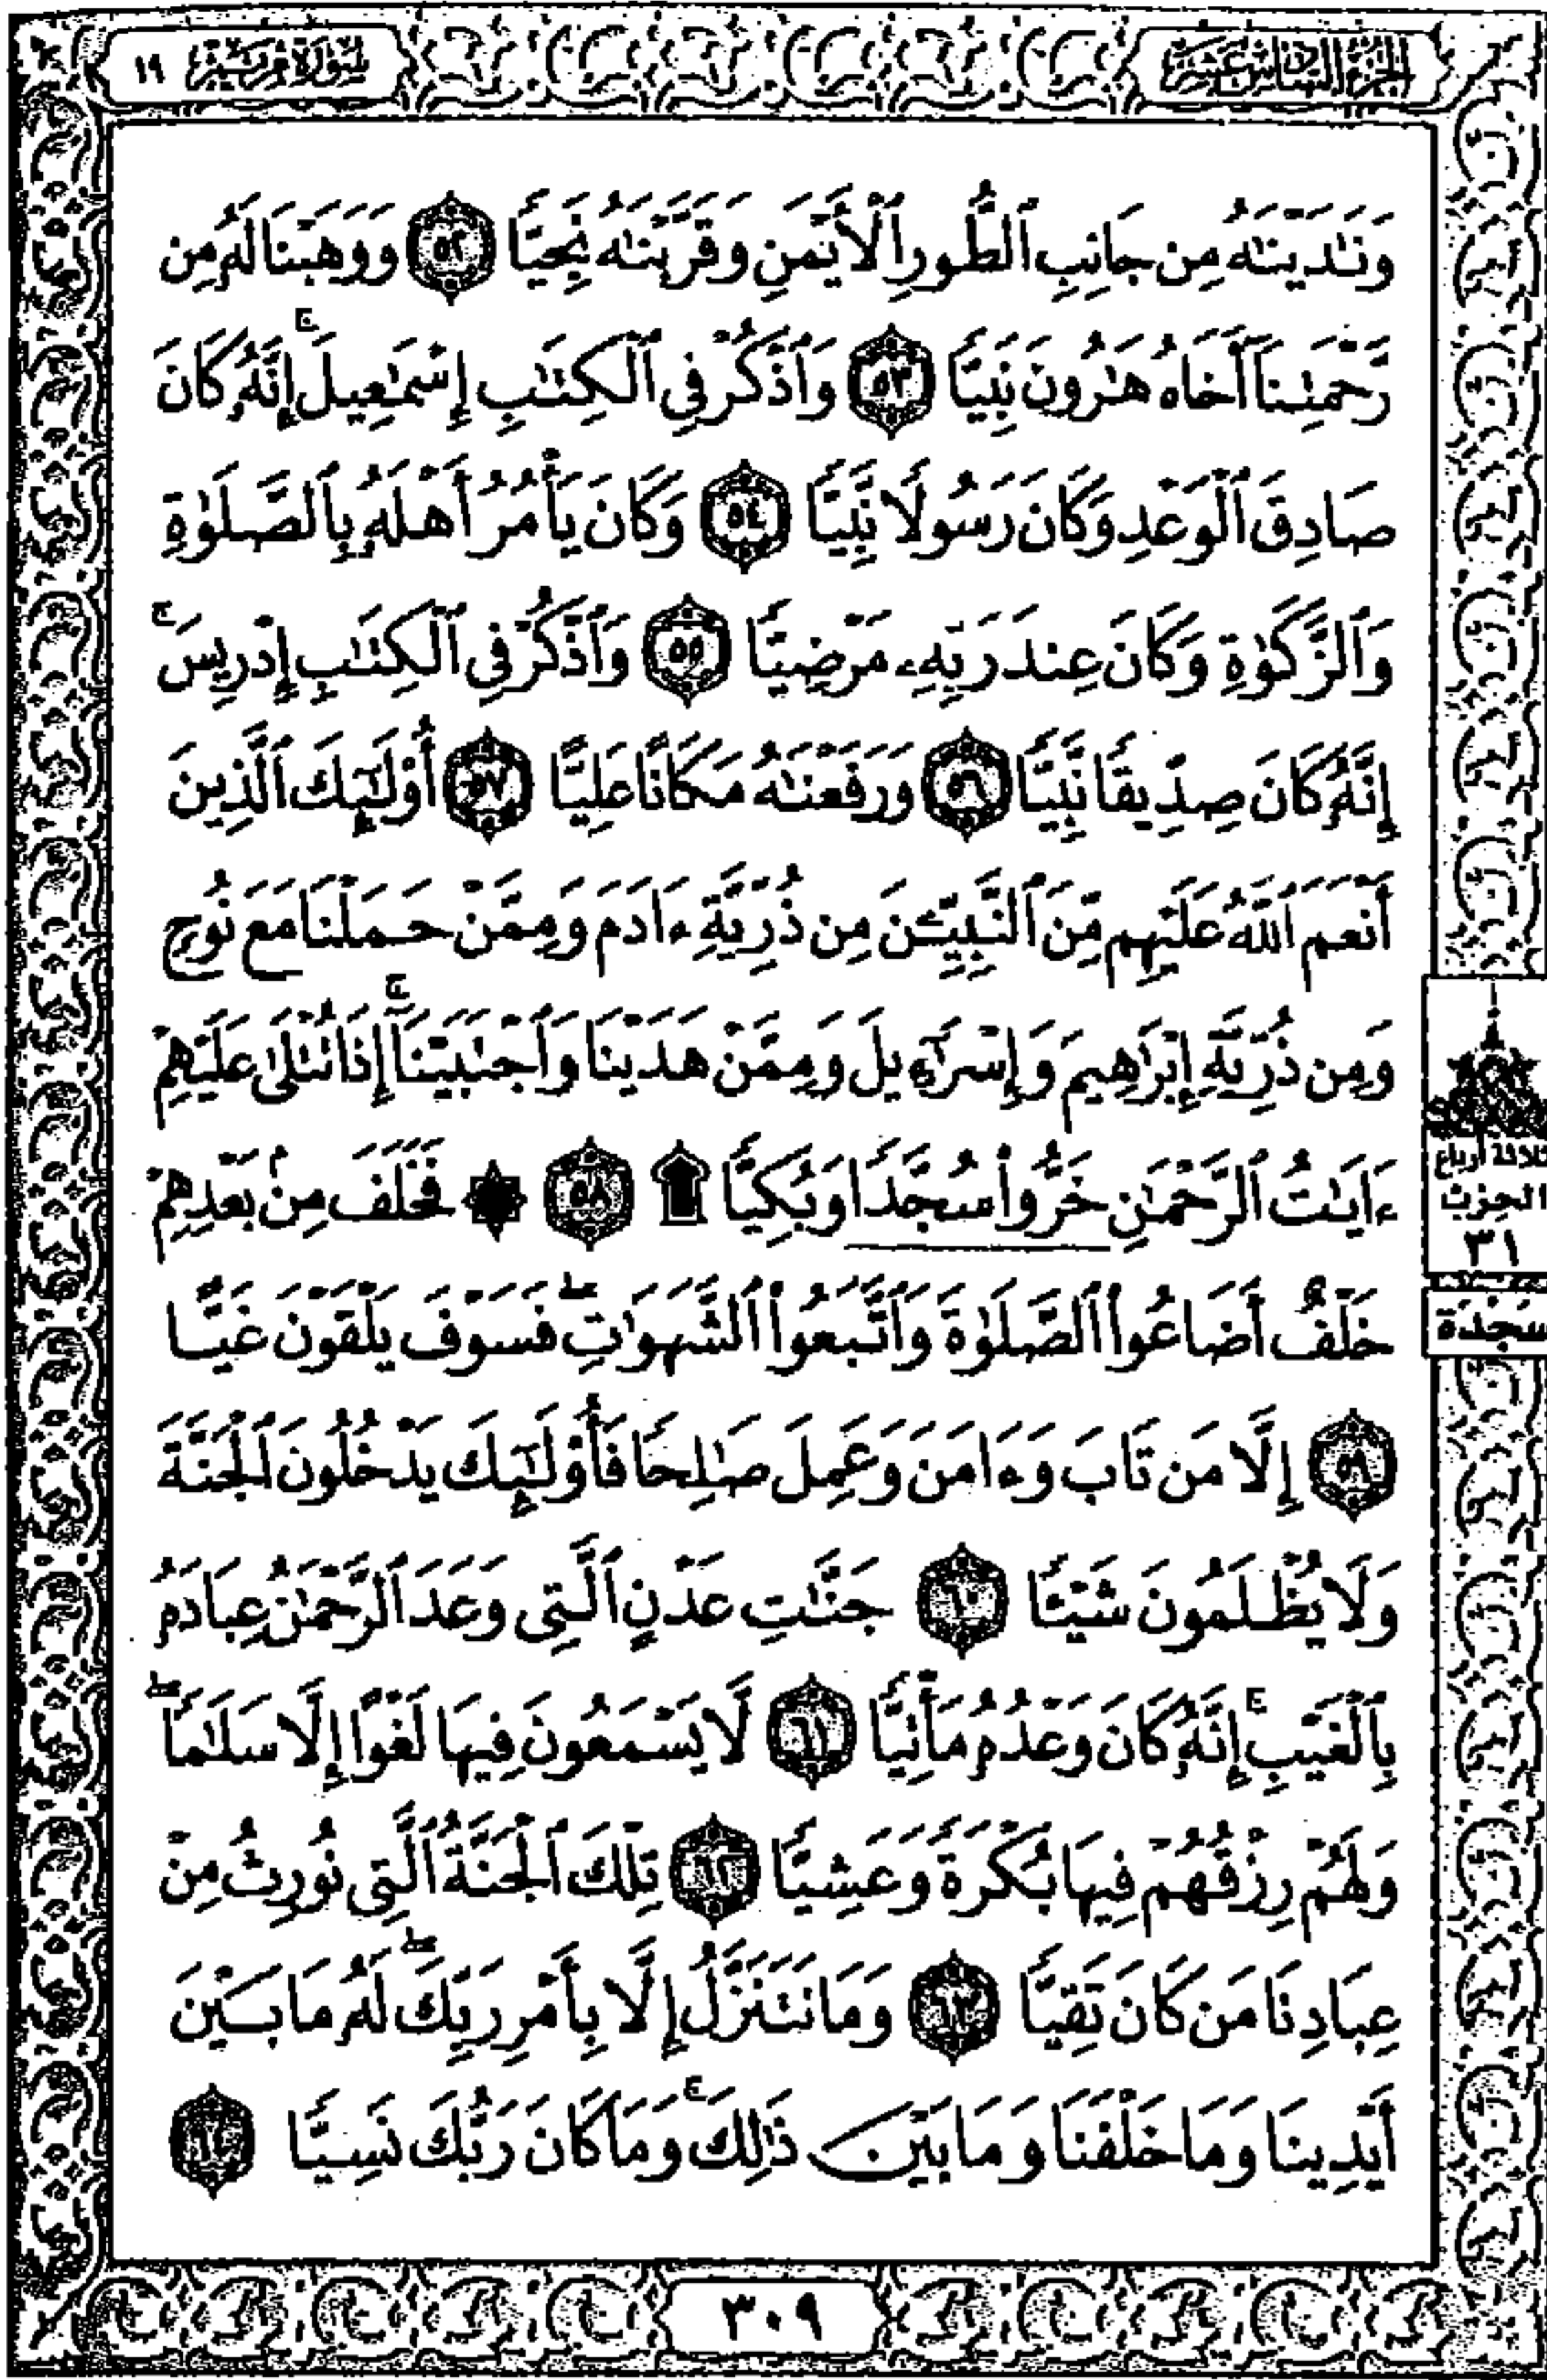 الجزء السادس عشر
سورة مريم ١٩
وَنَٰدَيْنَٰهُ مِن جَانِبِ ٱلطُّورِ ٱلْأَيْمَنِ وَقَرَّبْنَٰهُ نَجِيًّا ٥٢ وَوَهَبْنَا لَهُۥ مِن
رَّحْمَتِنَآ أَخَاهُ هَٰرُونَ نَبِيًّا ٥٣ وَٱذْكُرْ فِى ٱلْكِتَٰبِ إِسْمَٰعِيلَ ۚ إِنَّهُۥ كَانَ
صَادِقَ ٱلْوَعْدِ وَكَانَ رَسُولًا نَّبِيًّا ٥٤ وَكَانَ يَأْمُرُ أَهْلَهُۥ بِٱلصَّلَوٰةِ
وَٱلزَّكَوٰةِ وَكَانَ عِندَ رَبِّهِۦ مَرْضِيًّا ٥٥ وَٱذْكُرْ فِى ٱلْكِتَٰبِ إِدْرِيسَ ۚ
إِنَّهُۥ كَانَ صِدِّيقًا نَّبِيًّا ٥٦ وَرَفَعْنَٰهُ مَكَانًا عَلِيًّا ٥٧ أُو۟لَٰٓئِكَ ٱلَّذِينَ
أَنْعَمَ ٱللَّهُ عَلَيْهِم مِّنَ ٱلنَّبِيِّـۧنَ مِن ذُرِّيَّةِ ءَادَمَ وَمِمَّنْ حَمَلْنَا مَعَ نُوحٍ
وَمِن ذُرِّيَّةِ إِبْرَٰهِيمَ وَإِسْرَٰٓءِيلَ وَمِمَّنْ هَدَيْنَا وَٱجْتَبَيْنَآ ۚ إِذَا تُتْلَىٰ عَلَيْهِمْ
ءَايَٰتُ ٱلرَّحْمَٰنِ خَرُّوا۟ سُجَّدًا وَبُكِيًّا ۩ ٥٨ ۞ فَخَلَفَ مِنۢ بَعْدِهِمْ
خَلْفٌ أَضَاعُوا۟ ٱلصَّلَوٰةَ وَٱتَّبَعُوا۟ ٱلشَّهَوَٰتِ ۖ فَسَوْفَ يَلْقَوْنَ غَيًّا
٥٩ إِلَّا مَن تَابَ وَءَامَنَ وَعَمِلَ صَٰلِحًا فَأُو۟لَٰٓئِكَ يَدْخُلُونَ ٱلْجَنَّةَ
وَلَا يُظْلَمُونَ شَيْـًٔا ٦٠ جَنَّٰتِ عَدْنٍ ٱلَّتِى وَعَدَ ٱلرَّحْمَٰنُ عِبَادَهُۥ
بِٱلْغَيْبِ ۚ إِنَّهُۥ كَانَ وَعْدُهُۥ مَأْتِيًّا ٦١ لَّا يَسْمَعُونَ فِيهَا لَغْوًا إِلَّا سَلَٰمًا ۖ
وَلَهُمْ رِزْقُهُمْ فِيهَا بُكْرَةً وَعَشِيًّا ٦٢ تِلْكَ ٱلْجَنَّةُ ٱلَّتِى نُورِثُ مِنْ
عِبَادِنَا مَن كَانَ تَقِيًّا ٦٣ وَمَا نَتَنَزَّلُ إِلَّا بِأَمْرِ رَبِّكَ ۖ لَهُۥ مَا بَيْنَ
أَيْدِينَا وَمَا خَلْفَنَا وَمَا بَيْنَ ذَٰلِكَ ۚ وَمَا كَانَ رَبُّكَ نَسِيًّا ٦٤
ثلاثة أرباع
الحزب
٣١
سجدة
٣٠٩